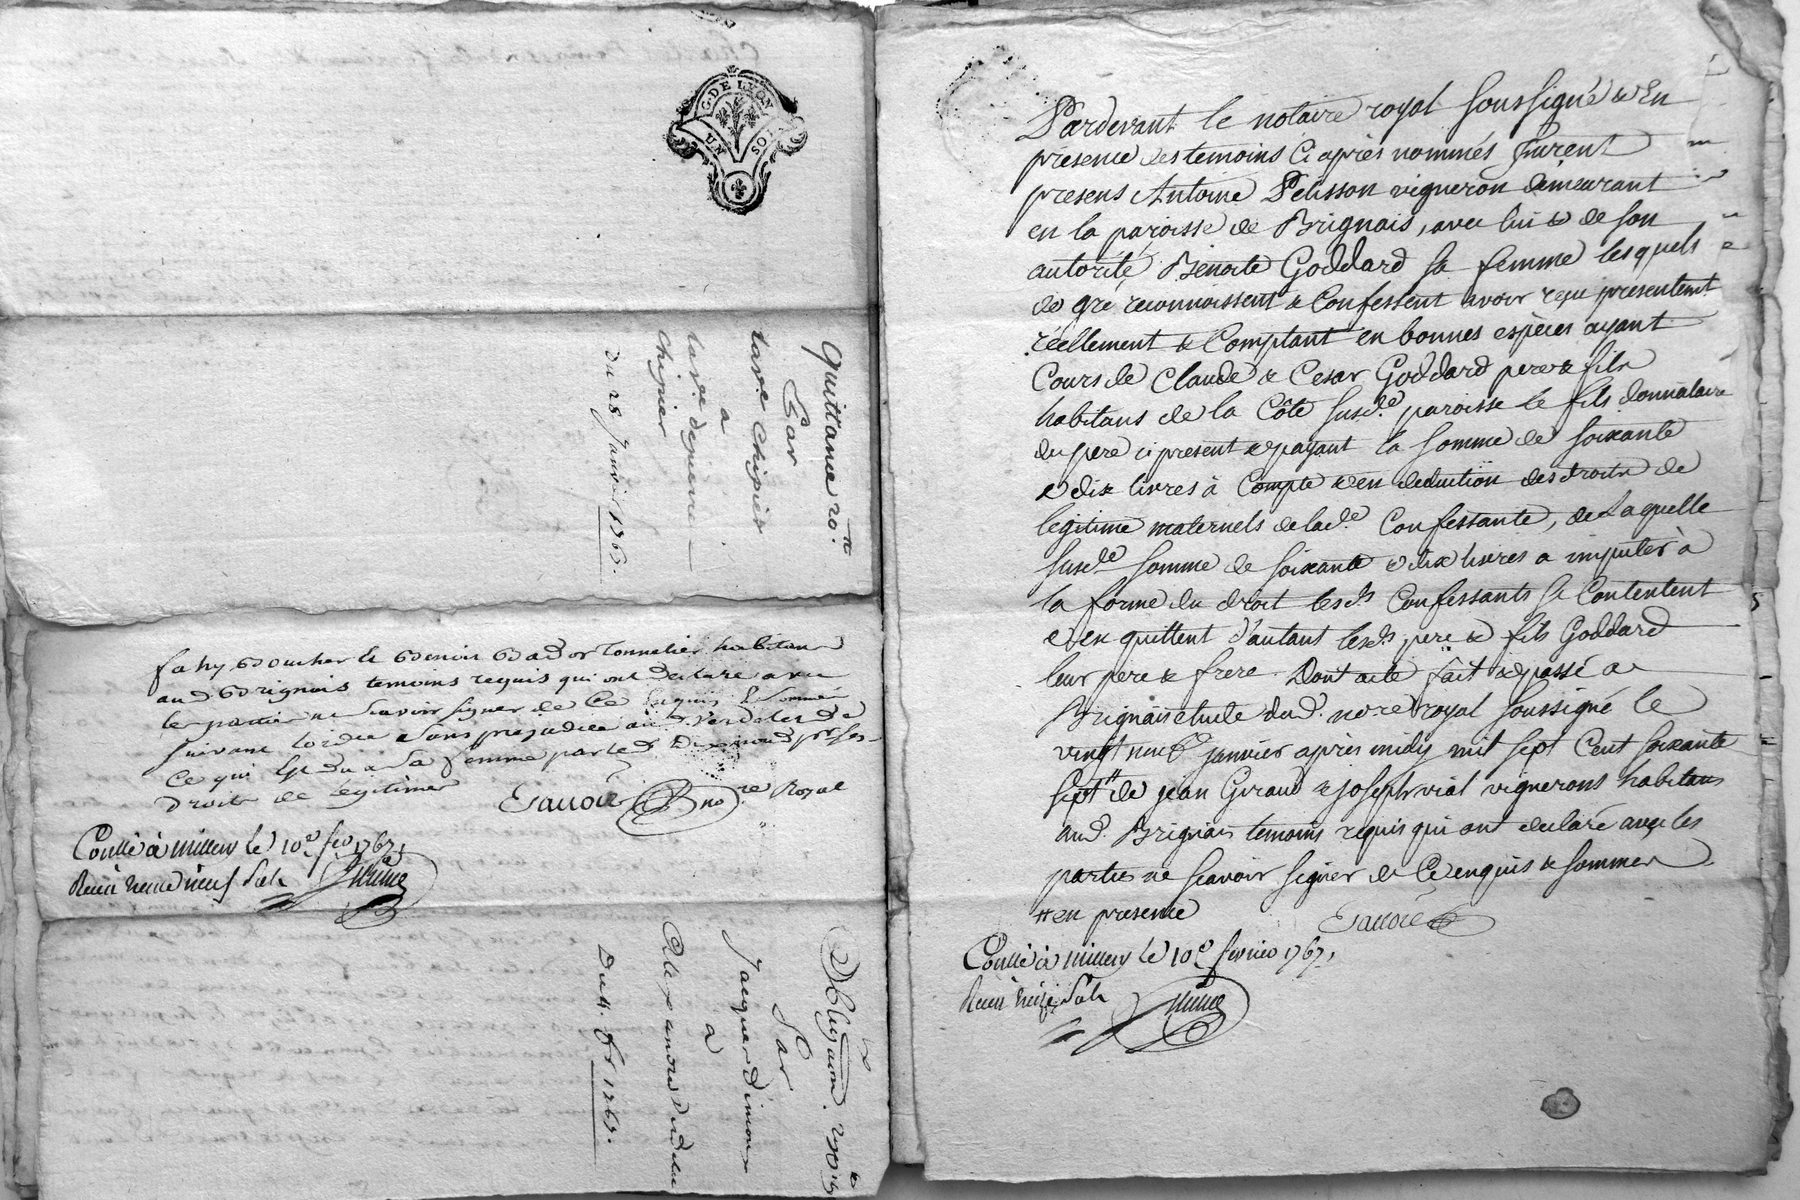 G. DE LYON
UN SOL
Quittance 20.tt
Par
lave Chipier
a
lave depierre
Chipier
Du 28 Janvier 176
faby Boucher & Benoit Bador tonnelier habitans
aud Brignais temoins requis qui ont declaré avec
les parties ne scavoir signer de ce enquis & sommé
suivant lordce & sans prejudice aud
Ce qui Est du a Sa femme par led
droits de legitimes
no.re Royal
Conllé à Millery le 10e fev 1767,
Receu neuf sols
Obligaon.
Par
Jacques
à
Du 11. fr 1767.
Pardevant le notaire royal soussigné & En
présence des temoins Ci après nommés furent
presens Antoine Pelisson vigneron demeurant
en la paroisse de Brignais, avec lui & de son
autorité, Benoite Goddard sa femme lesquels
de gré reconnoissent & Confessent avoir reçu presentemt.
réellement & Comptant en bonnes espèces ayant
Cours de Claude & Cesar Goddard pere & fils
habitans de la Côte susd.e paroisse le fils donnataire
du pere ci present & payant la somme de soixante
& dix livres à Compte & en deduction des droits de
legitime maternels de lad.e Confessante, de Laquelle
susd.e somme de soixante & dix livres a imputer à
la forme du droit lesd.s Confessants se Contentent
& en quittent d'autant lesd.s pere & fils Goddard
leur pere & frere. Dont acte fait & passé a
Brignais etude dud. no.re royal soussigné le
vingt neuf janvier après midy mil sept Cent soixante
sept tt de jean Giraud & joseph vial vignerons habitans
aud. Brignais temoins requis qui ont declaré avec les
parties ne scavoir signer de Ce enquis & sommer
tt en presence
Conllé à Millery le 10e fevrier 1767,
Receu sols